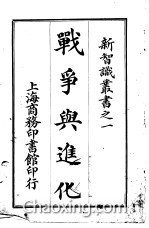 新智識叢書之一
戰爭與進化
上海商務印書館印行
Chaoxing.com